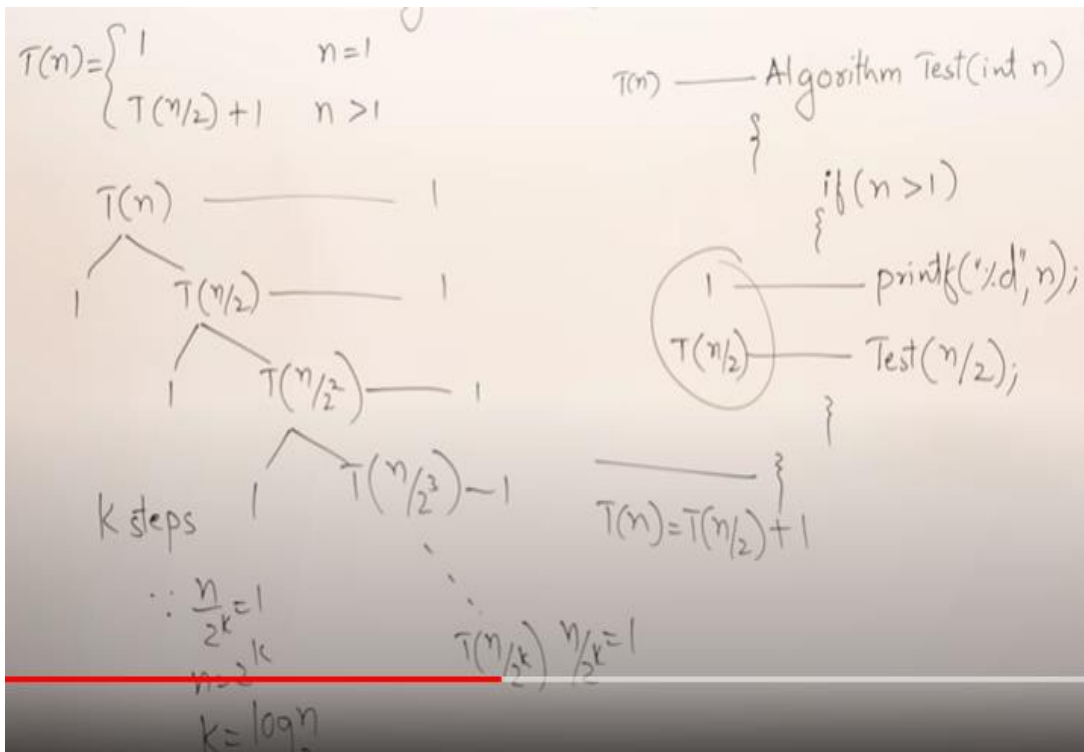 T(n)= { 1 n=1
T(n/2)+1 n>1
T(n) 1
1 T(n/2) 1
1 T(n/2²) 1
1 T(n/2³) 1
K steps
∵ n/2ᵏ=1
n=2ᵏ
k=log n
T(n/2ᵏ) n/2ᵏ=1
T(n) Algorithm Test(int n)
{
if(n>1)
{
1 printf("%d",n);
T(n/2) Test(n/2);
}
}
T(n)=T(n/2)+1